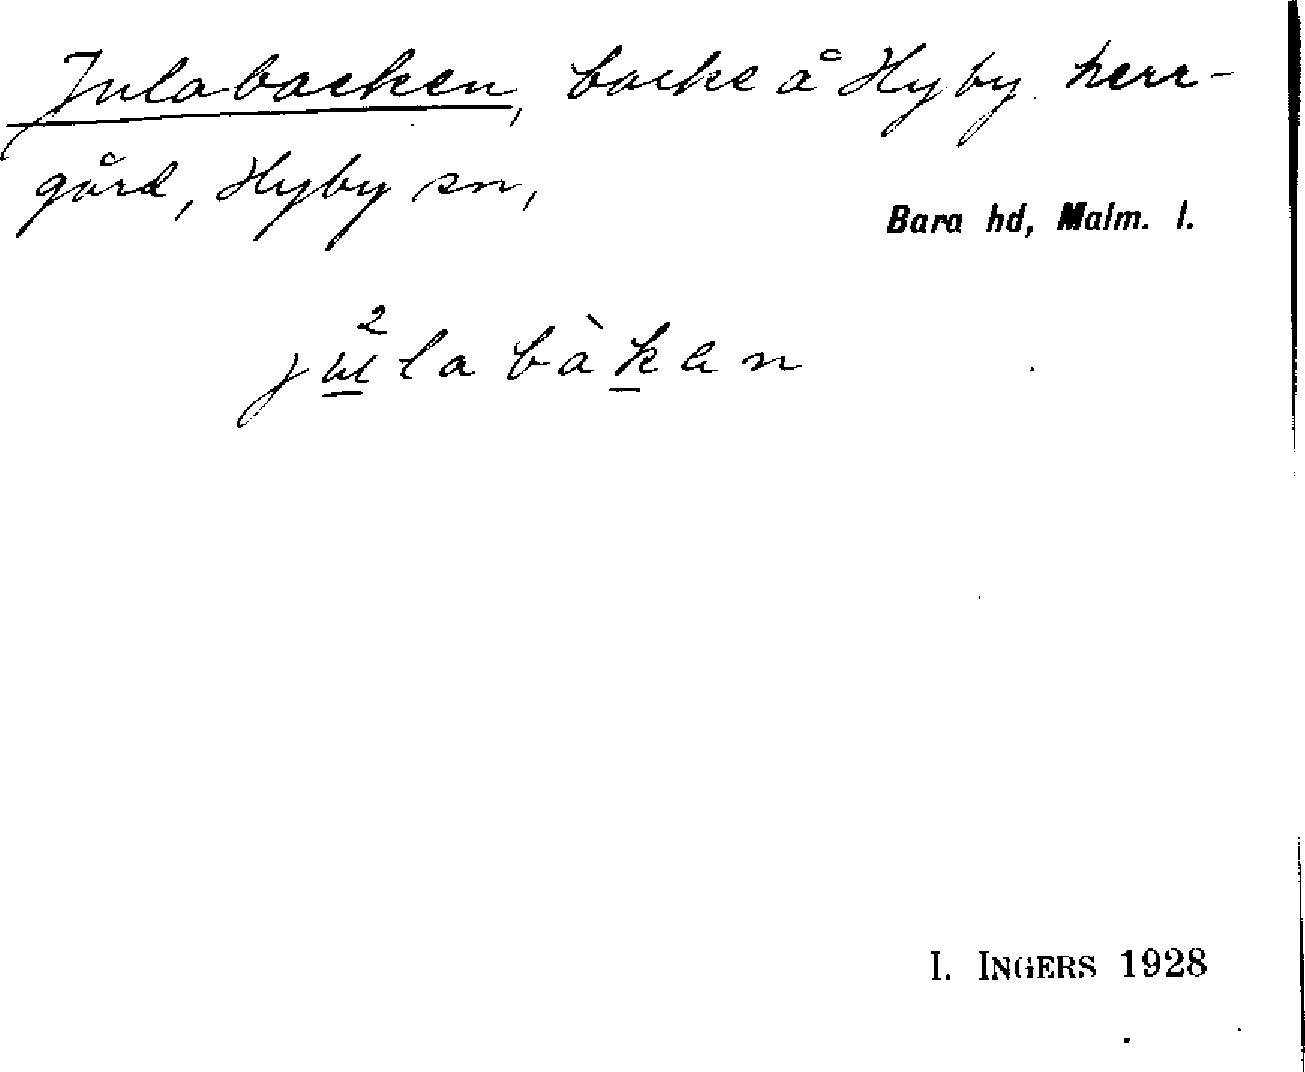 Julabacken, backe å Hyby herr-
gård, Hyby sn,
Bara hd, Malm. l.
I. INGERS 1928